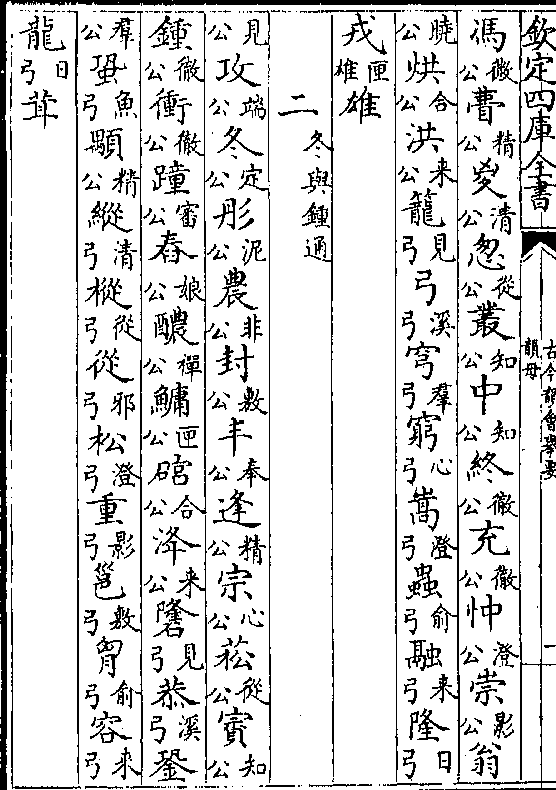 欽定四庫全書
古今韻會舉要
韻母
一
馮公微瞢公精嵏公清怱公從叢公知中公知終公徹充公徹忡公澄崇公影翁
公曉烘公合洪公来籠弓見弓弓溪穹弓羣窮弓心嵩弓澄蟲弓俞融弓来隆弓日
戎雄匣雄
二
冬與鍾通
公見攻公端冬公定彤公泥農公非封公敷丰公奉逢公精宗公心菘公從賨公知
鍾公徹衝公徹蹱公審舂公娘醲公禪鱅公匣公合洚公来弓見恭弓溪銎
公羣蛩弓魚顒公精縱弓清樅弓從從弓邪松弓澄重弓影邕弓敷胷弓俞容弓来
龍弓日茸